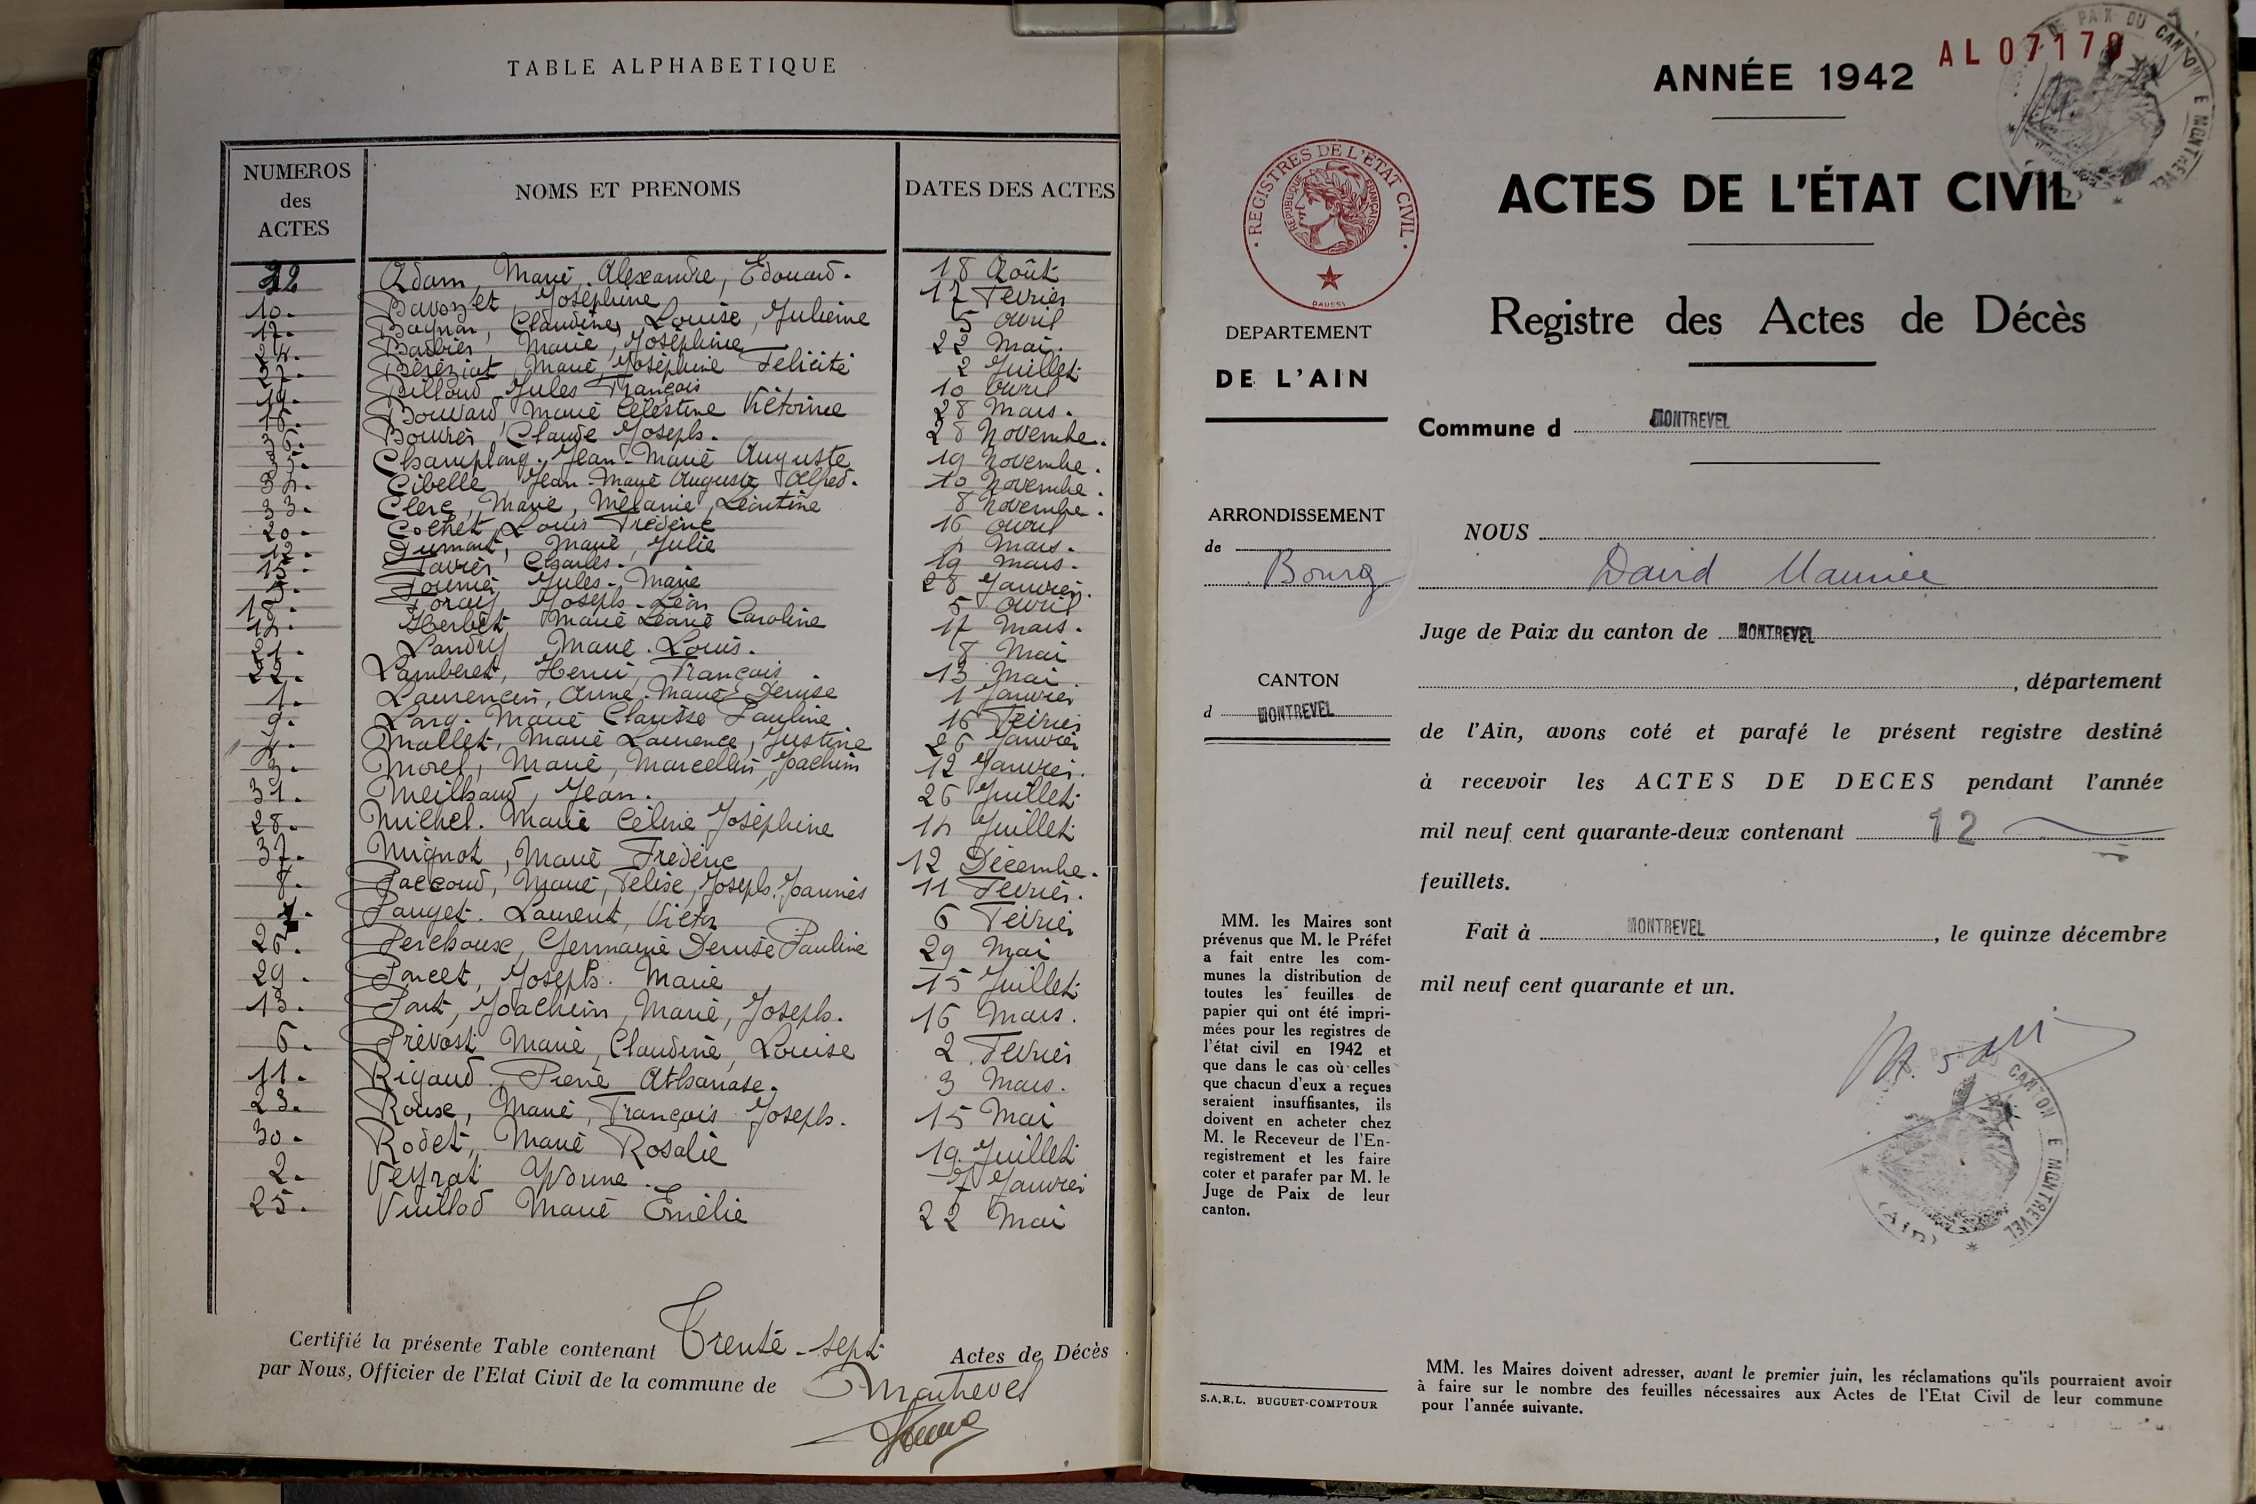 TABLE ALPHABETIQUE
NUMEROS des ACTES
NOMS ET PRENOMS
DATES DES ACTES
32 Adam, Marie, Alexandre, Edouard. 18 Août
10. Bavozet, Joséphine 12 Février
17. Claudine, Louise, Julienne 5 avril
24. Barbier, Marie, Joséphine 22 Mai.
27. Béréziat, Marie, Joséphine Felicité 2 Juillet
19. Billoud Jules François 10 avril
16. Bouvard Marie Célestine Victorine 28 Mars.
36. Bouvier, Claude Joseph. 28 Novembre.
35. Champlong. Jean-Marie Auguste 19 Novembre.
34. Cibelle Jean-Marie Auguste Alfred. 10 Novembre.
33. Clerc, Marie, Mélanie, Léontine 8 Novembre.
20. Cochet, Louis Frédéric 16 avril
12. Dumont, Marie, Julie 4 Mars.
15. Favier Charles. 19 Mars.
5. Fournier Jules-Marie 28 Janvier.
18. Joseph-Léon 5 avril
14. Herbet Marie Caroline 17 Mars.
21. Landry Marie. Louis. 8 Mai
22. Lamberet, Henri, François. 13 Mai
1. Laurencin, Anne. Marie Denise 1 Janvier
9. Marie Clarisse Pauline 16 Février
4. Mallet, Marie Laurence, Justine 26 Janvier
3. Morel, Marie, Marcellin, Joachim 12 Janvier.
31. Meilhaud, Jean. 26 Juillet
28. Michel. Marie Céline Joséphine 14 Juillet
37. Mignot, Marie Frédéric 12 Décembre.
8. Paccoud, Marie, Félise, Joseph. Joannès 11 Février.
7. Pauget. Laurent, Victor 6 Février
26. Perchoux, Germaine Denise Pauline 29 Mai
29. Poncet, Joseph. Marie 15 Juillet
13. Joachim, Marie, Joseph. 16 Mars.
6. Prévost Marie, Claudine, Louise 2 Février
11. Rigaud. Pierre Athanase. 3 Mars.
23. Roux, Marie, François Joseph. 15 Mai
30. Rodet, Marie Rosalie 19 Juillet
2. Veyrat Yvonne. 7 Janvier
25. Vuillod Marie Emélie 22 Mai
Certifié la présente Table contenant Trente-sept Actes de Décès
par Nous, Officier de l'Etat Civil de la commune de Montrevel
AL 07179
ANNÉE 1942
DE PAIX DU CANTON E MONTREVEL
ACTES DE L'ÉTAT CIVIL
Registre des Actes de Décès
REGISTRES DE L'ETAT CIVIL
REPUBLIQUE FRANÇAISE
DAUSSY
DEPARTEMENT
DE L'AIN
Commune d MONTREVEL
ARRONDISSEMENT
de Bourg
CANTON
d MONTREVEL
NOUS
David Maurice
Juge de Paix du canton de MONTREVEL
, département
de l'Ain, avons coté et parafé le présent registre destiné
à recevoir les ACTES DE DECES pendant l'année
mil neuf cent quarante-deux contenant 12
feuillets.
Fait à MONTREVEL, le quinze décembre
mil neuf cent quarante et un.
CANTON E MONTREVEL
(AIN)
MM. les Maires sont
prévenus que M. le Préfet
a fait entre les com-
munes la distribution de
toutes les feuilles de
papier qui ont été impri-
mées pour les registres de
l'état civil en 1942 et
que dans le cas où celles
que chacun d'eux a reçues
seraient insuffisantes, ils
doivent en acheter chez
M. le Receveur de l'En-
registrement et les faire
coter et parafer par M. le
Juge de Paix de leur
canton.
S.A.R.L. BUGUET-COMPTOUR
MM. les Maires doivent adresser, avant le premier juin, les réclamations qu'ils pourraient avoir
à faire sur le nombre des feuilles nécessaires aux Actes de l'Etat Civil de leur commune
pour l'année suivante.